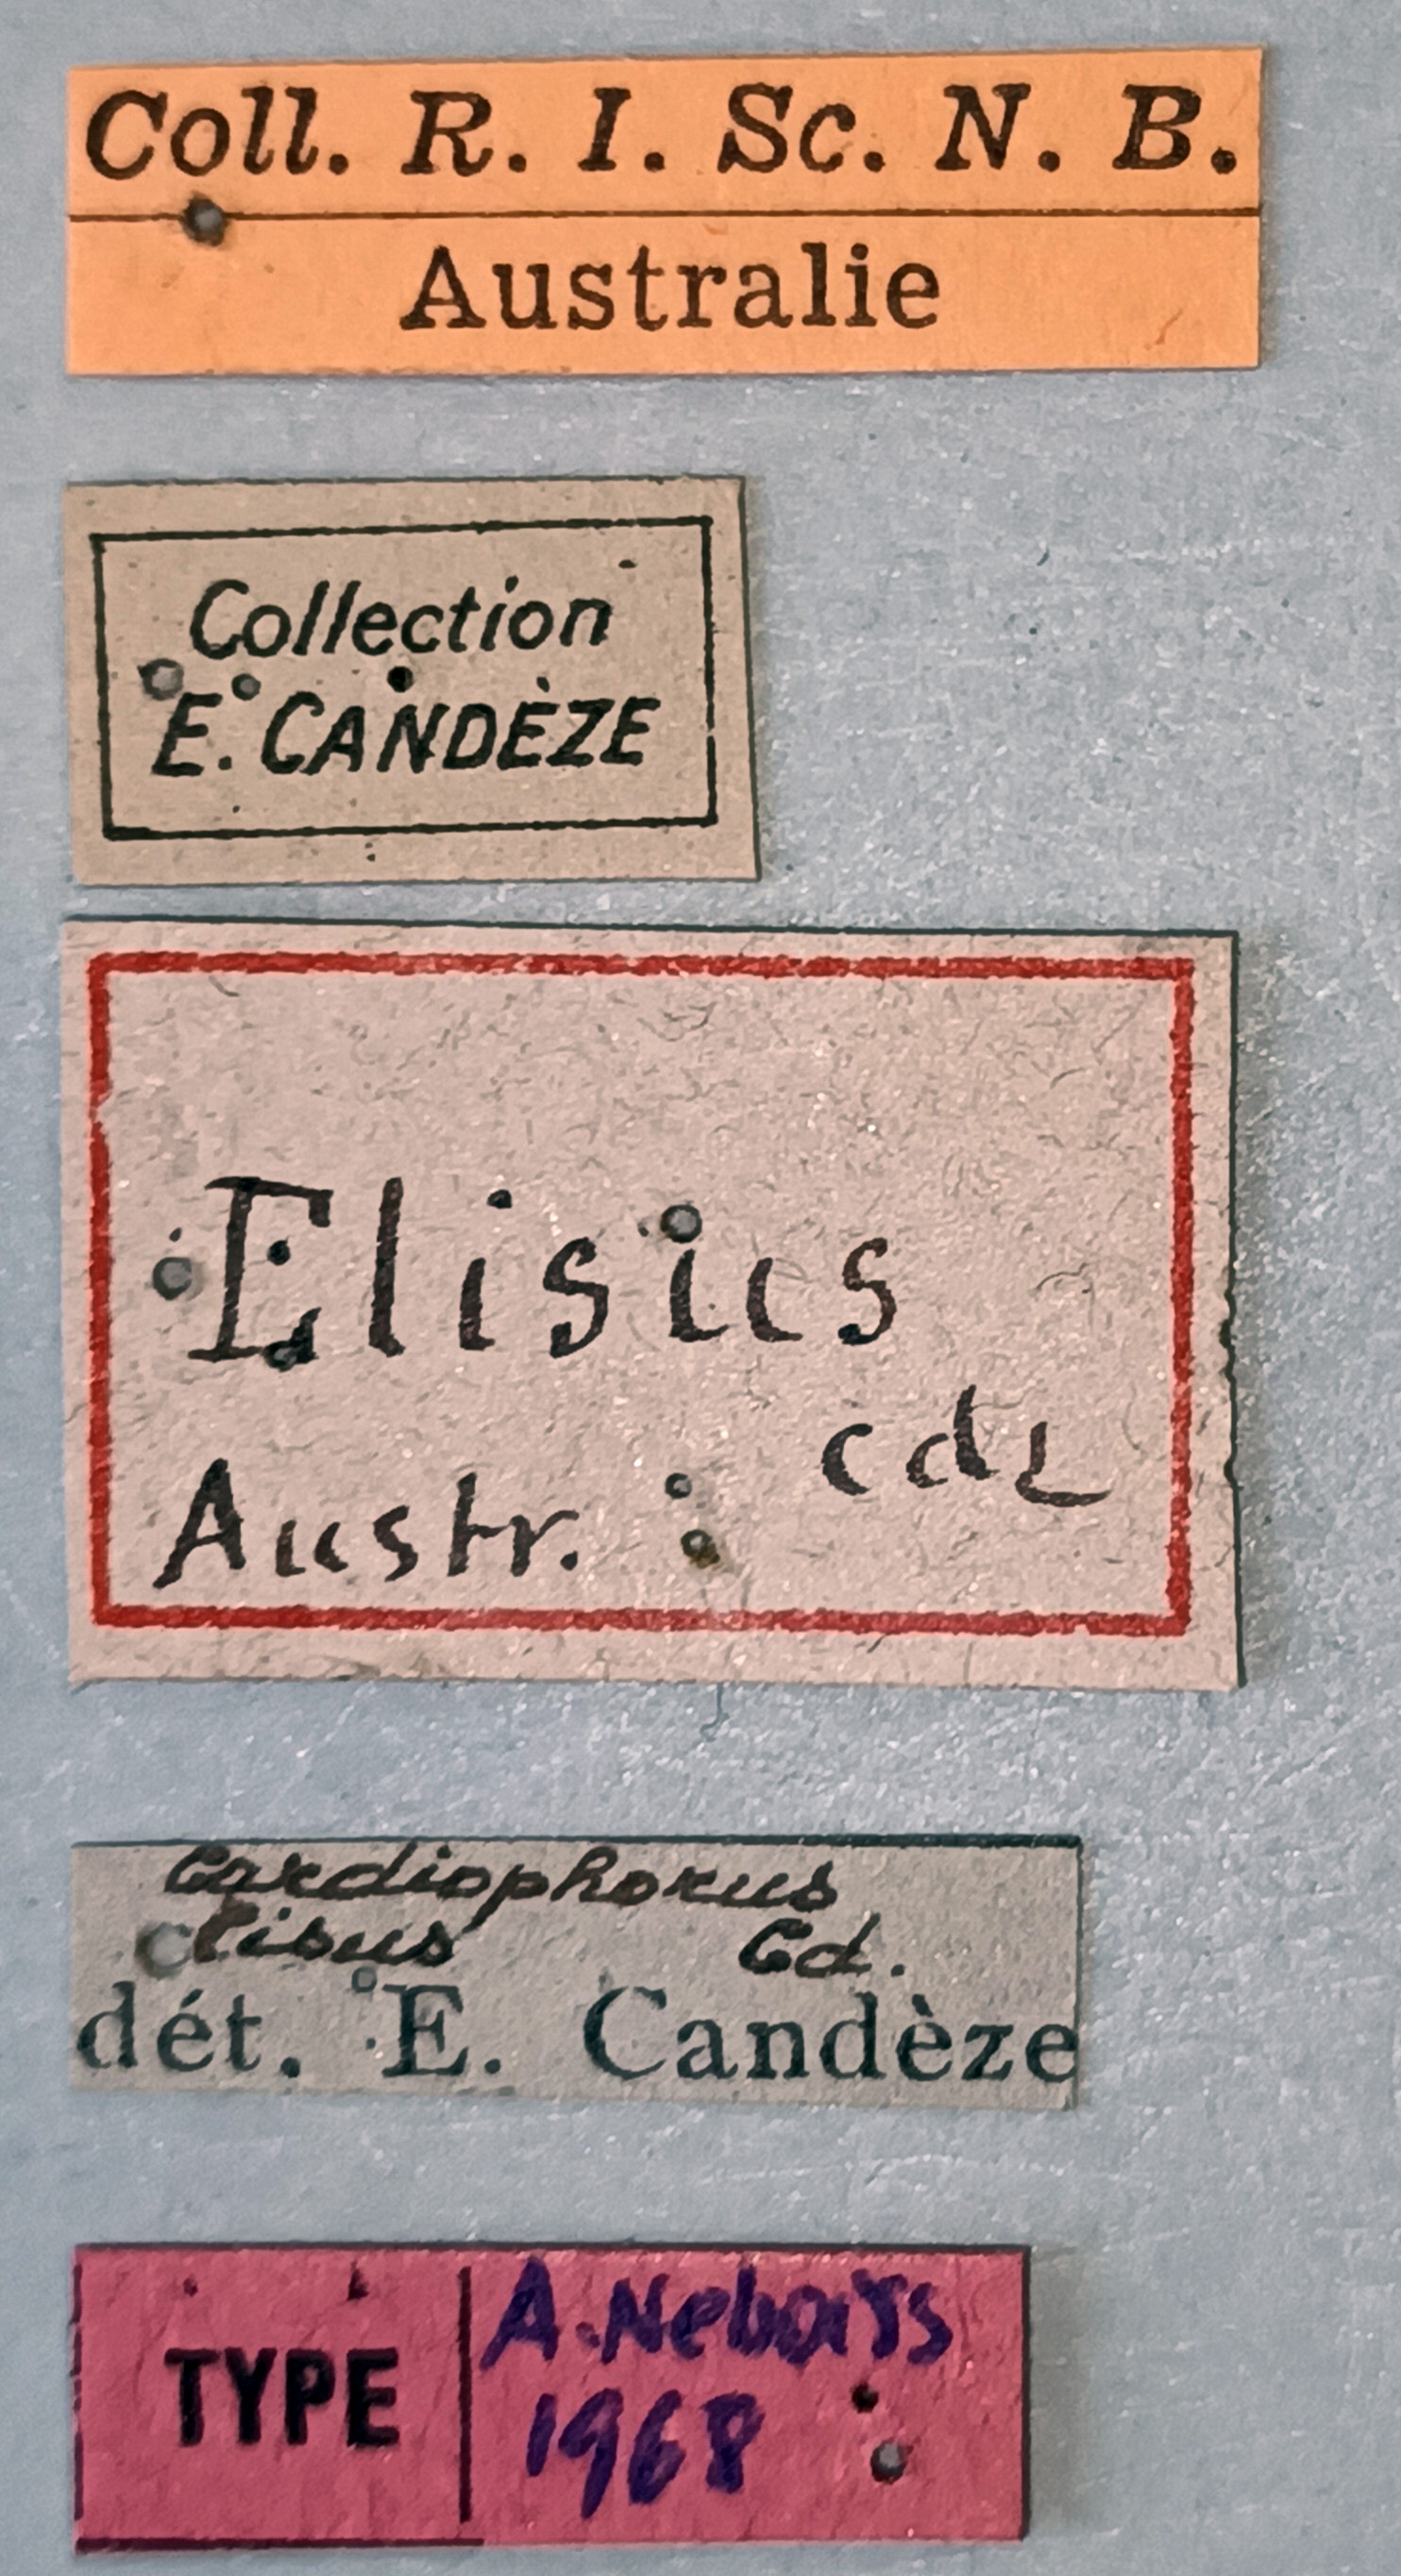 Coll. R. I. Sc. N. B.
Australie
Collection
E. CANDÈZE
Elisus
cdz
Austr.
Cardiophorus
elisus Cd.
dét. E. Candèze
TYPE
A. Neboiss
1968